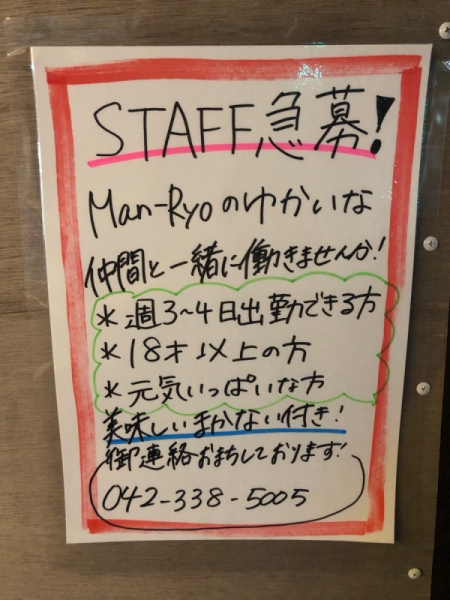 STAFF急募!
Man-Ryoのゆかいな
仲間と一緒に働きませんか!
*週3~4日出勤できる方
*18才以上の方
*元気いっぱいな方
美味しいまかない付き!
御連絡おまちしております!
042-338-5005